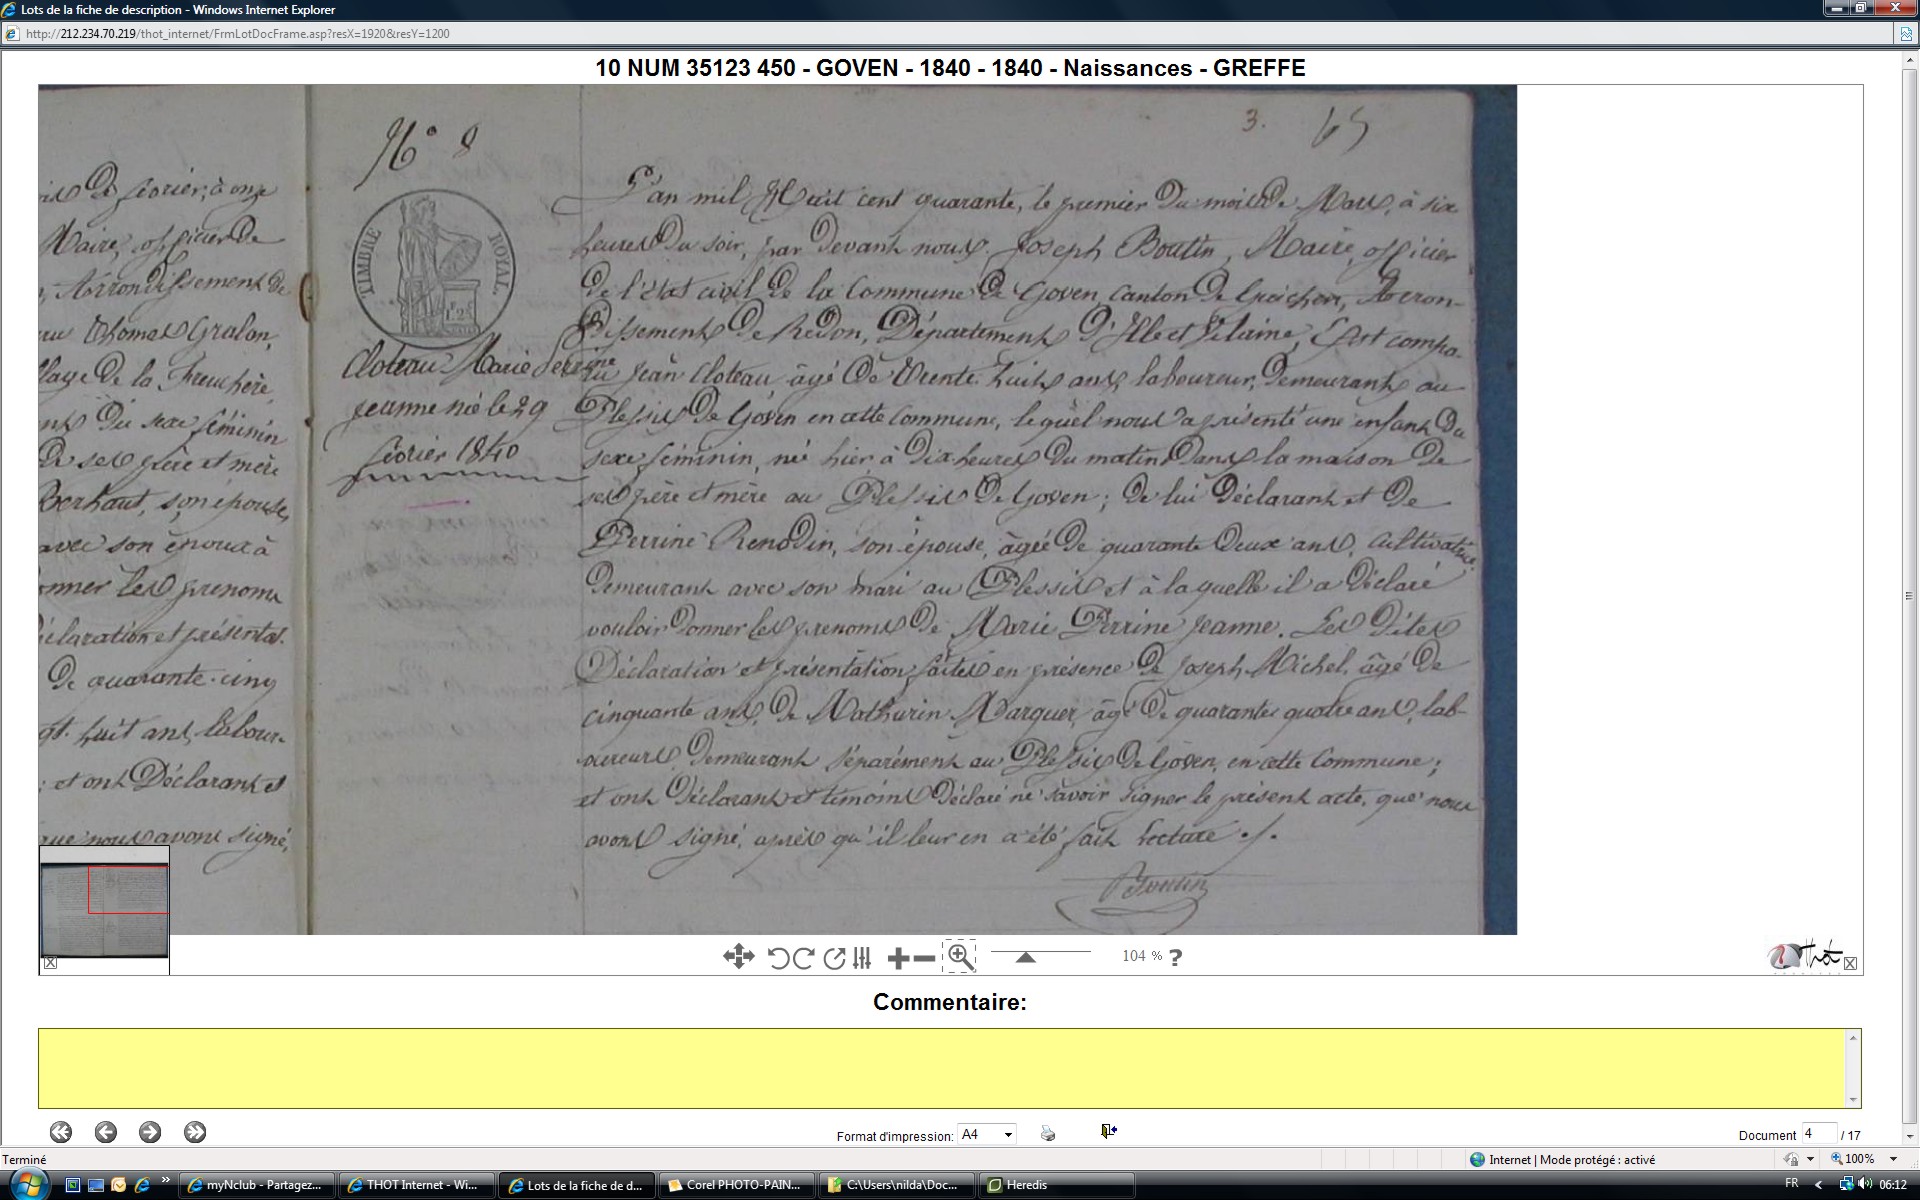 Lots de la fiche de description - Windows Internet Explorer
http://212.234.70.219/thot_internet/FrmLotDocFrame.asp?resX=1920&resY=1200
10 NUM 35123 450 - GOVEN - 1840 - 1840 - Naissances - GREFFE
3. 65
N° 8
TIMBRE ROYAL
Cloteau Marie Perrine
Jeanne née le 29
février 1840
de février, à onze
Maire, officier de
Arrondissement de
Thomas Gralon,
de la Freuchère,
du sexe féminin
de ses père et mère
Berhaut, son épouse,
avec son époux à
les prenoms
déclaration et présentat.
de quarante-cinq
huit ans, labour-
; et ont Déclarant et
que nous avons signé,
L'an mil Huit cent quarante, le premier du mois de Mars, à six
heures du soir, par devant nous Joseph Boutin, Maire, officier
de l'état civil de la Commune de Goven, Canton de Guichen, Arron-
dissement de Redon, Département d'Ille et Vilaine, Est compa-
ru Jean Cloteau âgé de trente huit ans, laboureur, demeurant au
Plessis de Goven en cette Commune, lequel nous a présenté une enfant du
sexe féminin, né hier à dix heures du matin dans la maison de
ses père et mère au Plessis de Goven ; de lui Déclarant et de
Perrine Renodin, son épouse, âgée de quarante deux ans, cultivatrice,
demeurant avec son mari au Plessis et à laquelle il a déclaré
vouloir donner les prenoms de Marie Perrine Jeanne. Les dites
Déclaration et présentation faites en présence de Joseph Michel, âgé de
cinquante ans, de Mathurin Marquer, âgé de quarante quatre ans, lab-
oureurs, demeurant séparément au Plessis de Goven, en cette Commune ;
et ont Déclarant et témoins Déclaré ne savoir signer le présent acte, que nous
avons signé, après qu'il leur en a été fait lecture ./.
Boutin
104 % ?
Thot
Commentaire:
Format d'impression: A4
Document 4 / 17
Terminé
Internet | Mode protégé : activé
100%
myNclub - Partagez...
THOT Internet - Wi...
Lots de la fiche de d...
Corel PHOTO-PAIN...
C:\Users\nilda\Doc...
Heredis
FR
06:12